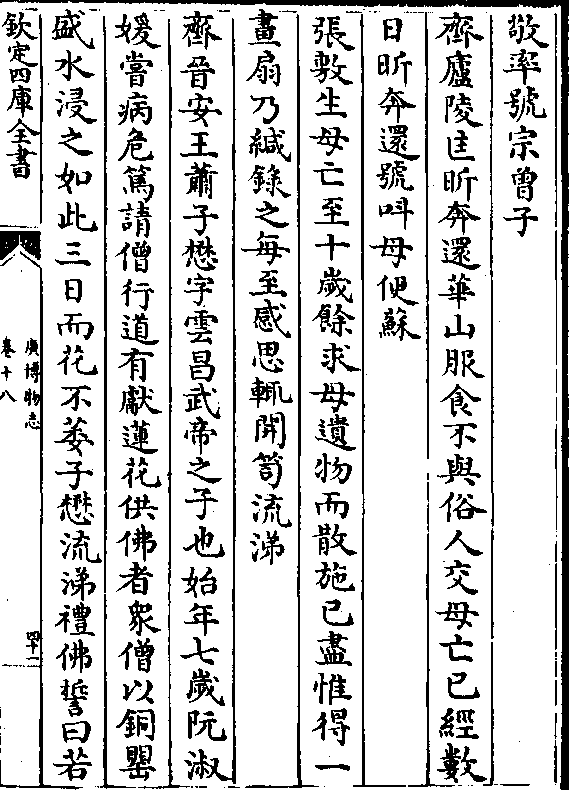 敬率號宗曾子
齊廬陵匡昕奔還華山服食不與俗人交母亡已經數
日昕奔還號呌母便蘇
張敷生母亡至十歲餘求母遺物而散施已盡惟得一
畫扇乃緘錄之每至感思輒開笥流涕
齊晉安王蕭子懋字雲昌武帝之子也始年七歲阮淑
媛嘗病危篤請僧行道有獻蓮花供佛者衆僧以銅罌
盛水浸之如此三日而花不萎子懋流涕禮佛誓曰若
欽定四庫全書
廣博物志
卷十八
四十一